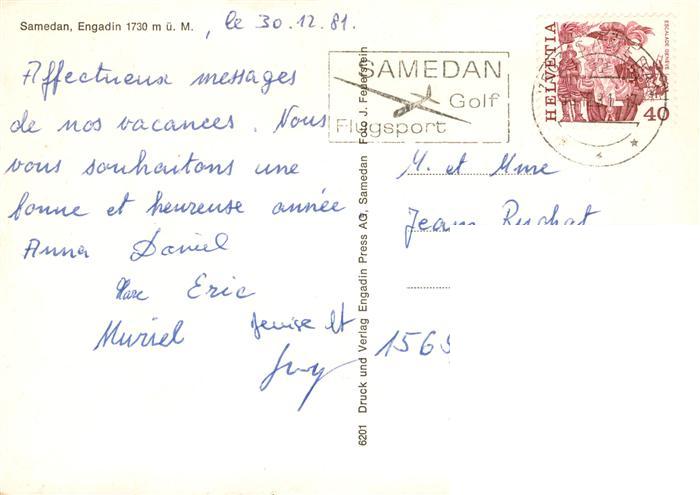 Samedan, Engadin 1730 m ü. M.
, le 30.12.81.
Affectueux messages
de nos vacances. Nous
vous souhaitons une
bonne et heureuse année
Anna Daniel
Marc Eric
Muriel Denise et
Guy
SAMEDAN
Golf
Flugsport
HELVETIA
ESCALADE GENEVE
40
6201 Druck und Verlag Engadin Press AG, Samedan Foto J. Feuerstein
M. et Mme
Jean Ruchat
1565